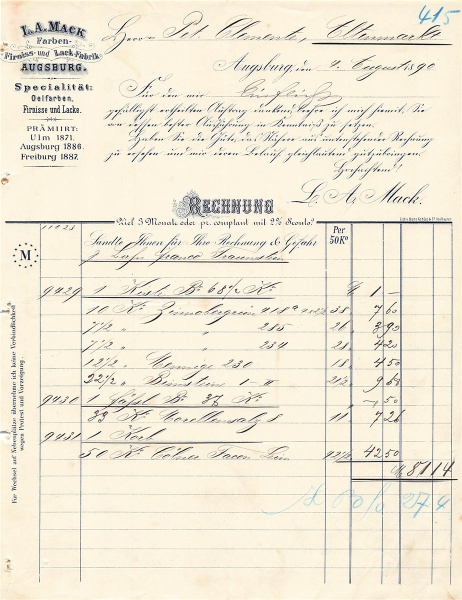 415
L. A. Mack
Farben-
Firniss- und Lack-Fabrik
AUGSBURG.
Specialität:
Oelfarben,
Firnisse und Lacke.
PRÄMIIRT:
Ulm 1871.
Augsburg 1886.
Freiburg 1887.
Herrn Pet. Clementi, Altenmarkt
Augsburg, den 4. August 1890
Für den mir
gefälligst ertheilten Auftrag dankend, beehre ich mich hiemit, Sie
von dessen bester Ausführung in Kenntniß zu setzen.
Haben Sie die Güte, das Nähere aus untenstehender Rechnung
zu ersehen und mir deren Betrag gleichlautend gutzubringen.
Hochachtend!
L. A. Mack.
RECHNUNG
Ziel 3 Monate oder pr. comptant mit 2% Sconto.
Per
50 Ko
11023
Sandte Ihnen für Ihre Rechnung & Gefahr
p. Bahn franco Traunstein
M
9429 1 Kiste Bo 68½ Ko M 1 —
10 Ko Zinnobergrün 418a 38. 7 60
7½ " " 285 26 3 90
7½ " " 234 28 4 20
12½ " 230 18 4 50
22½ " Bimstein 21½ 9 68
9430 1 Fässl Bo 37 Ko — 50
33 Ko 11. 7 26
9431 1 Korb
50 Ko Cölner Leim 42½ 42 50
M 81 14
Für Wechsel auf Nebenplätze übernehme ich keine Verbindlichkeit
wegen Protest und Vorzeigung.